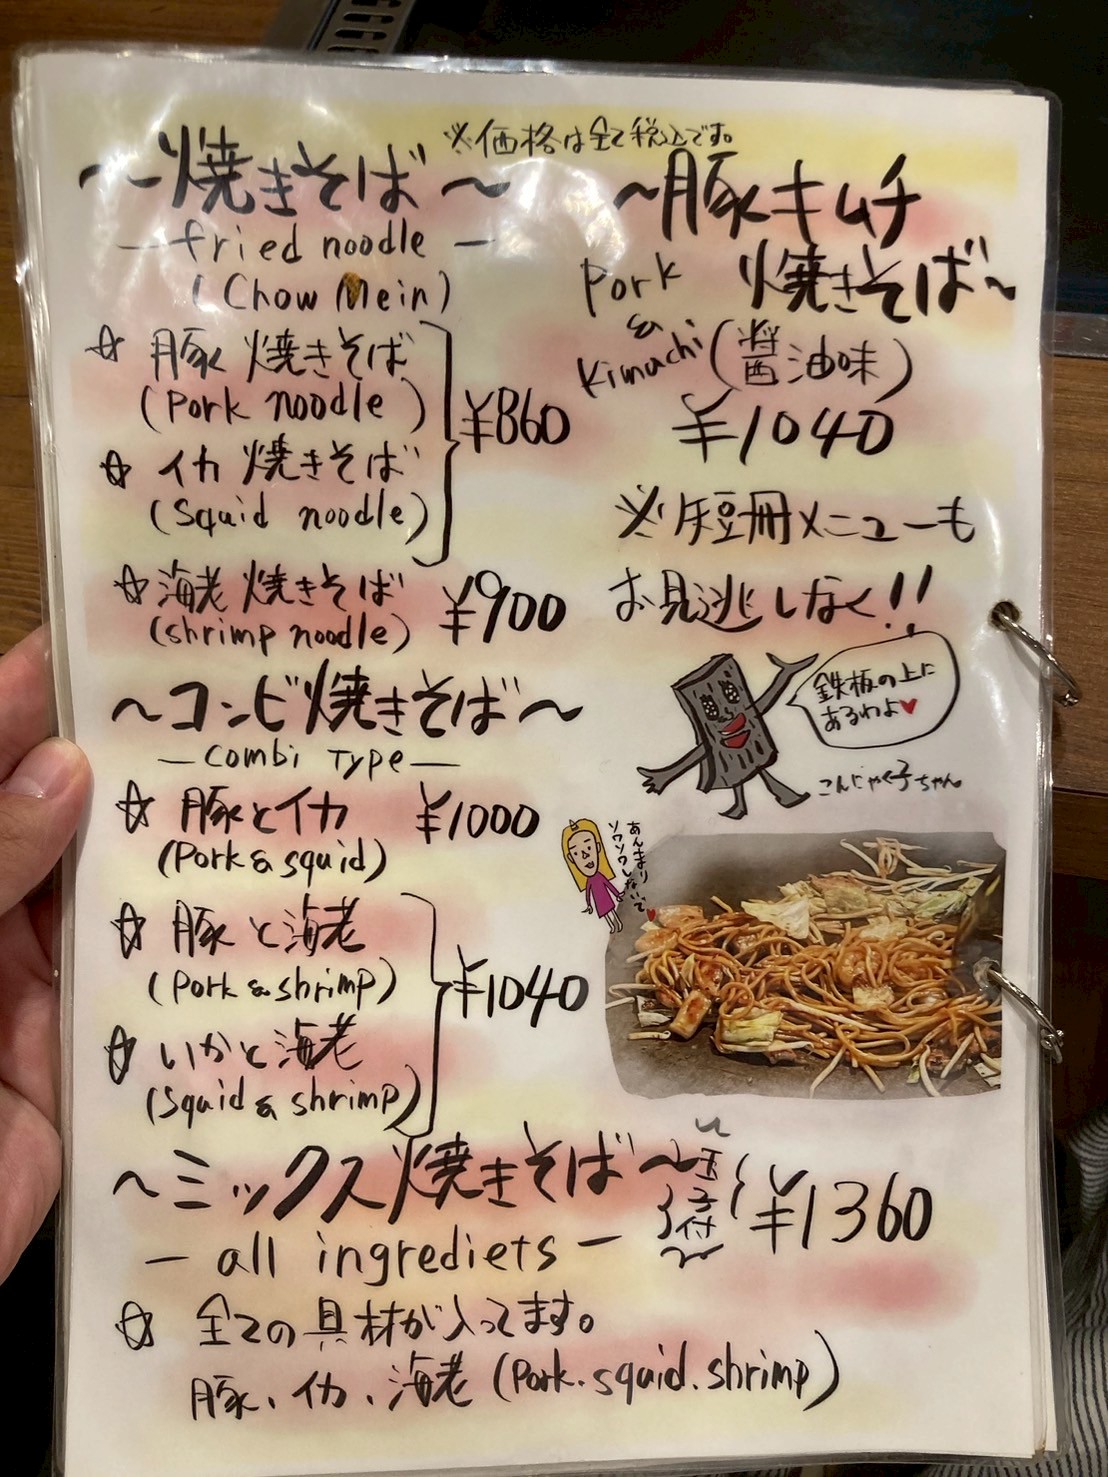 ※価格は全て税込です。
~焼きそば~
-fried noodle-
(Chow Mein)
☆ 豚焼きそば
(Pork noodle)
☆ イカ焼きそば
(Squid noodle)
¥860
☆ 海老焼きそば ¥900
(shrimp noodle)
~コンビ焼きそば~
-combi Type-
☆ 豚とイカ ¥1000
(Pork & squid)
☆ 豚と海老
(Pork & shrimp)
☆ いかと海老
(Squid & shrimp)
¥1040
~ミックス焼きそば~ 玉子付 ¥1360
- all ingrediets -
☆ 全ての具材が入ってます。
豚、イカ、海老 (Pork.squid.shrimp)
~豚キムチ
焼きそば~
Pork
&
Kimuchi
(醤油味)
¥1040
※短冊メニューも
お見逃しなく!!
鉄板の上に
あるわよ♥
こんにゃく子ちゃん
あんまり
ソワソワしないで♥